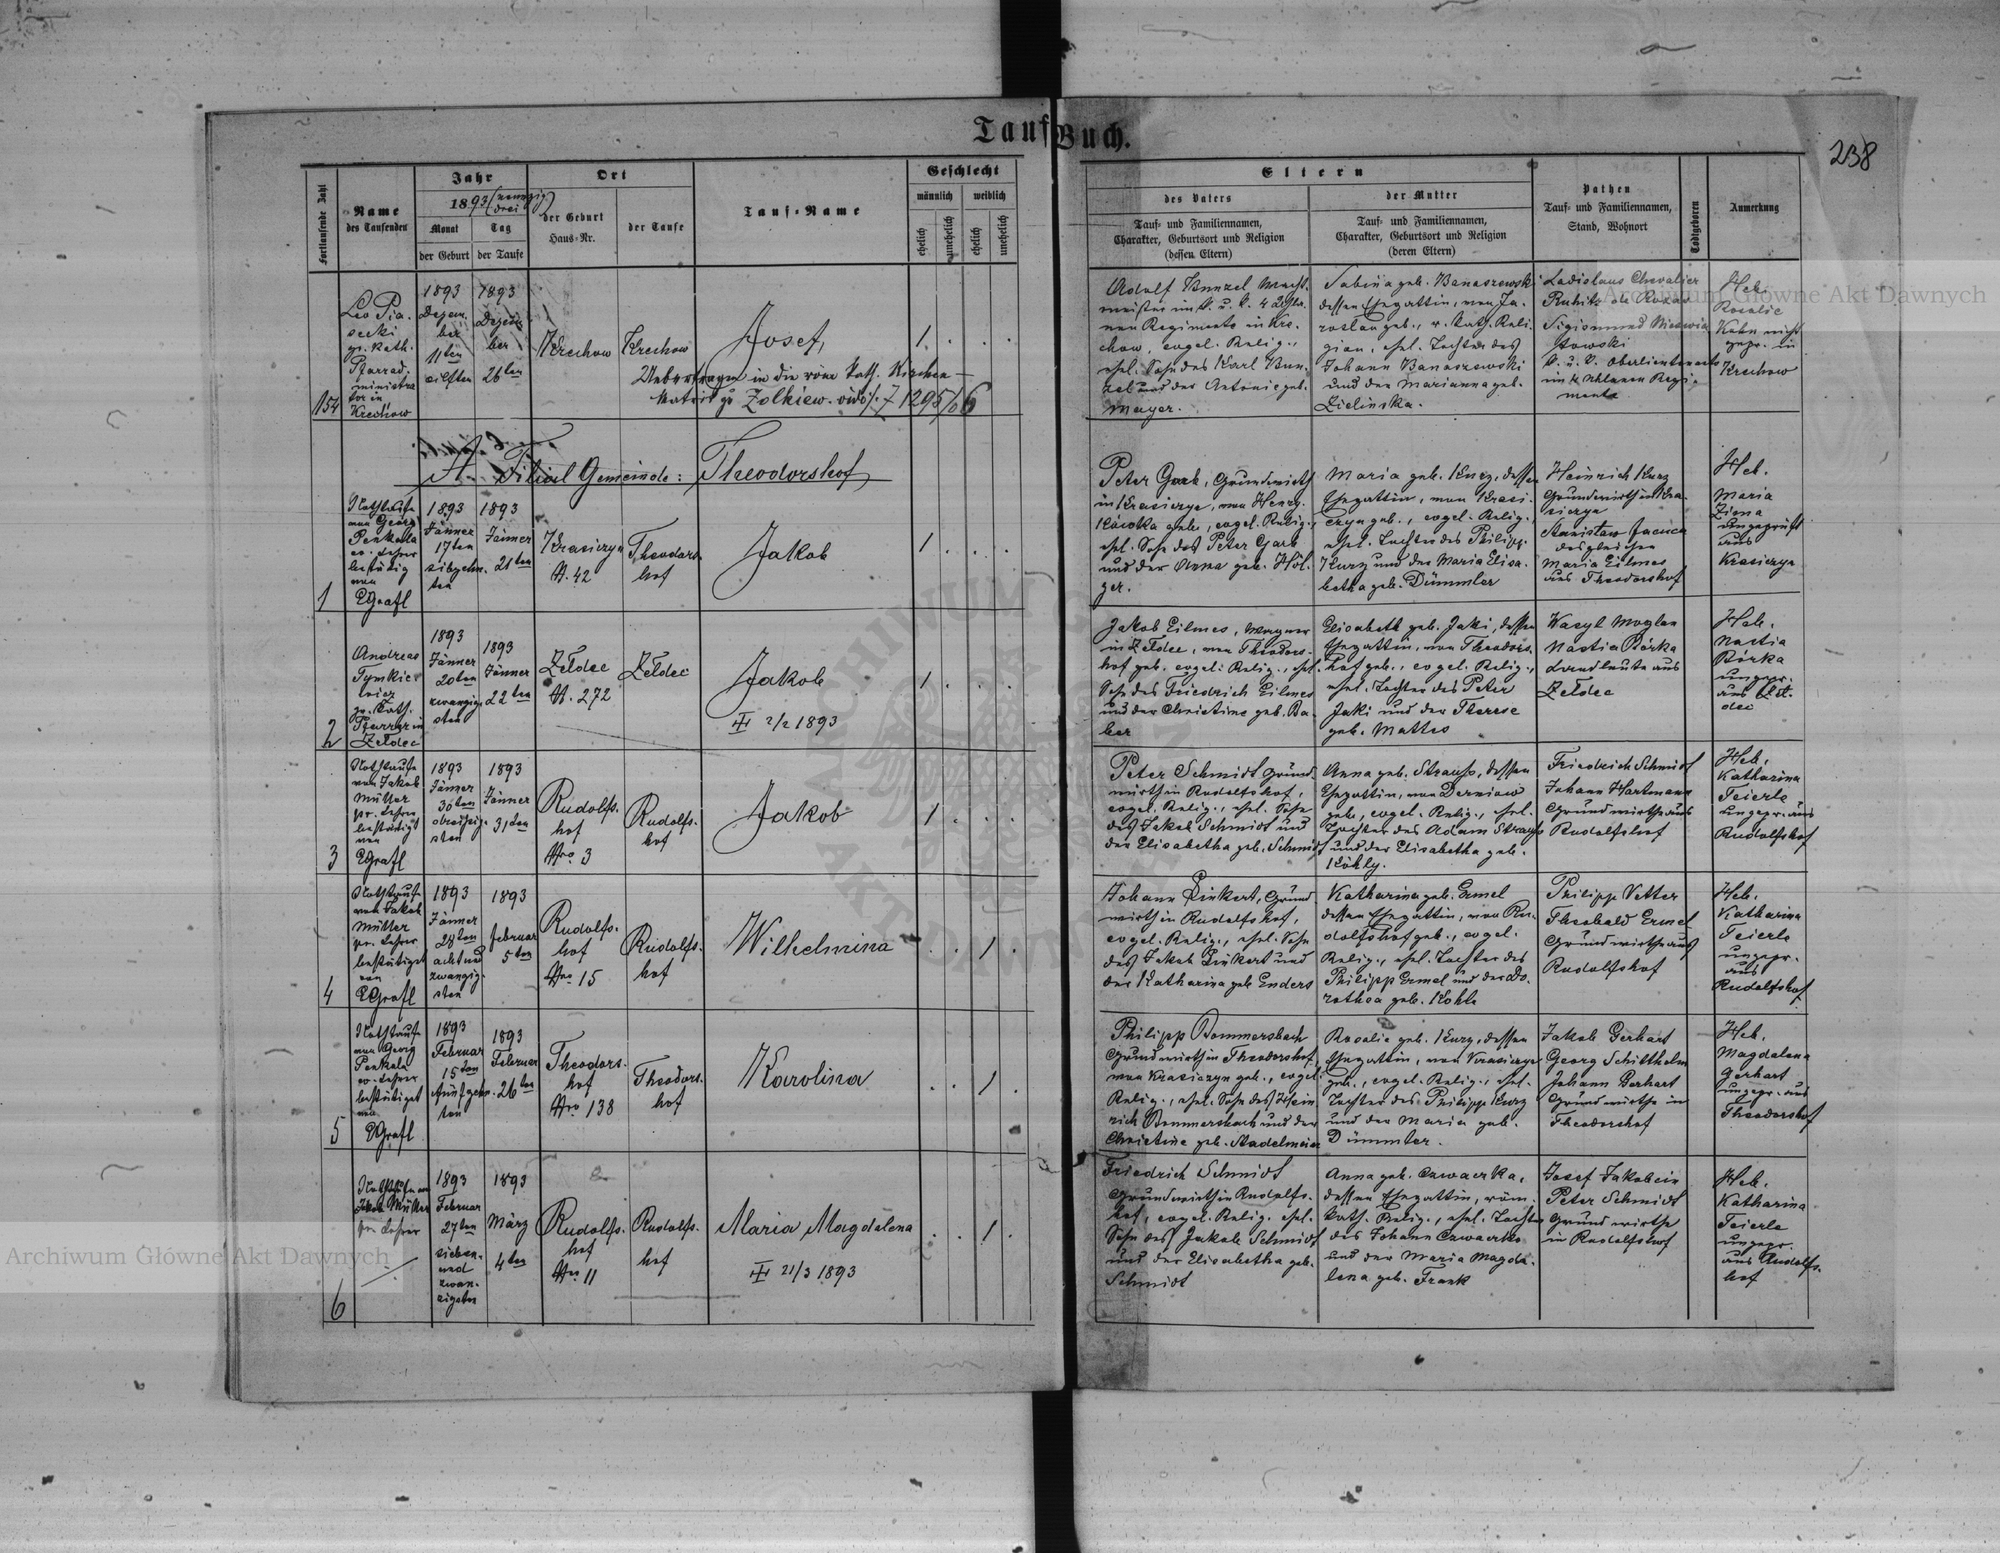 Tauf-Buch.
238
Fortlaufende Zahl
Name
des Taufenden
Jahr
1893 (neunzig drei)
Monat
Tag
der Geburt
der Taufe
Ort
der Geburt
Haus-Nr.
der Taufe
Tauf-Name
Geschlecht
männlich
weiblich
ehelich
unehelich
ehelich
unehelich
Eltern
des Vaters
Tauf- und Familiennamen,
Charakter, Geburtsort und Religion
(dessen Eltern)
der Mutter
Tauf- und Familiennamen,
Charakter, Geburtsort und Religion
(deren Eltern)
Pathen
Tauf- und Familiennamen,
Stand, Wohnort
Todtgeboren
Anmerkung
154
Leo Pia-
secki
gr. kath.
Pfarrad-
ministra
tor in
Krechow
1893
Dezem
ber
11ten
eilften
1893
Dezem
ber
26ten
Krechow
Krechow
Josef,
1.
Uebertragen in die röm kath. Kirchen-
Matrik Zolkiew. 1295/06
Adolf Kunzel Wacht-
meister im k. u. k. 4 Uhla-
nen Regimente in Kre-
chow, evgel. Relig.,
ehel. Sohn des Karl Kun-
zel und der Antonie geb.
Mayer.
Sabina geb. Banaszewski
dessen Ehegattin, von Ja-
roslau geb., r. kath. Reli-
gion, ehel. Tochter des
Johann Banaszewski
und der Marianna geb.
Zielinska.
Ladislaus Chevalier
Rubitz de Rozas
Sigismund
k. u. k. Oberlieutenants
im 4 Uhlanen Regi-
mente
Heb.
Rosalie
Kohn nicht
gepr. in
Krechow
A. Filial Gemeinde: Theodorshof
1
Nothtaufe
von Georg
Penkala
ev. Lehrer
bestätig
von
EGrafl
1893
Jänner
17ten
siebzehn-
ten
1893
Jänner
21ten
Krasiczyn
N. 42
Theodors-
hof
Jakob
1
Peter Gark, Grundwirth
in Krasiczyn, von
geb., evgel. Relig.,
ehel. Sohn des Peter Gark
und der Anna geb. Höl-
ger.
Maria geb. Kurz, dessen
Ehegattin, von Krasi-
czyn geb., evgel. Relig.,
ehel. Tochter des Philipp
Kurz und der Maria Elisa-
betha geb. Dümmler
Heinrich Kurz
Grundwirth in Kra-
siczyn
Stanislaw Jacuca
desgleichen
Maria Eilmes
aus Theodorshof
Heb.
Maria
Zima
ungeprüft
aus
Krasiczyn
2
Andreas
Tymkie-
wicz
gr. kath.
Pfarrer in
Zeldec
1893
Jänner
20ten
zwanzig-
sten
1893
Jänner
22ten
Zeldec
N. 272
Zeldec
Jakob
2/2 1893
1.
Jakob Eilmes, Wagner
in Zeldec, von Theodors-
hof geb. evgel. Relig., ehel.
Sohn des Friedrich Eilmes
und der Christine geb. Ba-
ber
Elisabeth geb. Jaki, dessen
Ehegattin, von Theodors-
hof geb., evgel. Relig.,
ehel. Tochter des Peter
Jaki und der Therese
geb. Mattes
Wasyl Moglan
Nastia Bórka
Landleute aus
Zeldec
Heb.
Nastia
Bórka
ungepr.
aus Zel-
dec
3
Nothtaufe
von Jakob
Müller
pr. Lehrer
bestätigt
von
EGrafl
1893
Jänner
30ten
dreißig-
sten
1893
Jänner
31ten
Rudolfs-
hof
Nro 3
Rudolfs-
hof
Jakob
1.
Peter Schmidt Grund-
wirth in Rudolfshof,
evgel. Relig., ehel. Sohn
des Jakob Schmidt und
der Elisabetha geb. Schmidt
Anna geb. Strauss, dessen
Ehegattin, von Derniow
geb., evgel. Relig., ehel.
Tochter des Adam Strauss
und der Elisabetha geb.
Köhly.
Friedrich Schmidt
Johann Hartmann
Grundwirthe aus
Rudolfshof
Heb.
Katharina
Feierle
ungepr. aus
Rudolfshof
4
Nothtaufe
von Jakob
Müller
pr. Lehrer
bestätiget
von
EGrafl
1893
Jänner
28ten
acht und
zwanzig-
sten
1893
Februar
5ten
Rudolfs-
hof
Nro 15
Rudolfs-
hof
Wilhelmina
1
Johann Linkert, Grund-
wirth in Rudolfshof,
evgel. Relig., ehel. Sohn
des Jakob Linkert und
der Katharina geb. Enders
Katharina geb. Ermel
dessen Ehegattin, von Ru-
dolfshof geb., evgel.
Relig., ehel. Tochter des
Philipp Ermel und der Do-
rothea geb. Kohle
Philipp Vetter
Theobald Ermel
Grundwirthe aus
Rudolfshof
Heb.
Katharina
Feierle
ungepr.
aus
Rudolfshof
5
Nothtaufe
von Georg
Penkala
ev. Lehrer
bestätiget
von
EGrafl
1893
Februar
15ten
fünfzehn-
ten
1893
Februar
26ten
Theodors-
hof
Nro 138
Theodors-
hof
Karolina
1
Philipp Bommersbach
Grundwirth in Theodorshof,
von Krasiczyn geb., evgel.
Relig., ehel. Sohn des Hein
rich Bommersbach und der
Christine geb. Stadelmeier
Rosalie geb. Kurz, dessen
Ehegattin, von Krasiczyn
geb., evgel. Relig., ehel.
Tochter des Philipp Kurz
und der Maria geb.
Dümmler.
Jakob Gerhart
Georg Schitthelm
Johann Gerhart
Grundwirthe in
Theodorshof
Heb.
Magdalena
Gerhart
ungepr. aus
Theodorshof
6
Nothtaufe von
Jakob Müller
pr. Lehrer
1893
Februar
27ten
sieben-
und
zwan-
zigsten
1893
März
4ten
Rudolfs-
hof
Nro 11
Rudolfs-
hof
Maria Magdalena
21/3 1893
1
Friedrich Schmidt
Grundwirth in Rudolfs-
hof, evgel. Relig. ehel.
Sohn des Jakob Schmidt
und der Elisabetha geb.
Schmidt
Anna geb. Czwaczka,
dessen Ehegattin, röm.
kath. Relig., ehel. Tochter
des Johann Czwaczka
und der Maria Magda-
lena geb. Frank
Josef Jakobein
Peter Schmidt
Grundwirthe
in Rudolfshof
Heb.
Katharina
Feierle
ungepr.
aus Rudolfs-
hof
Archiwum Główne Akt Dawnych
Archiwum Główne Akt Dawnych